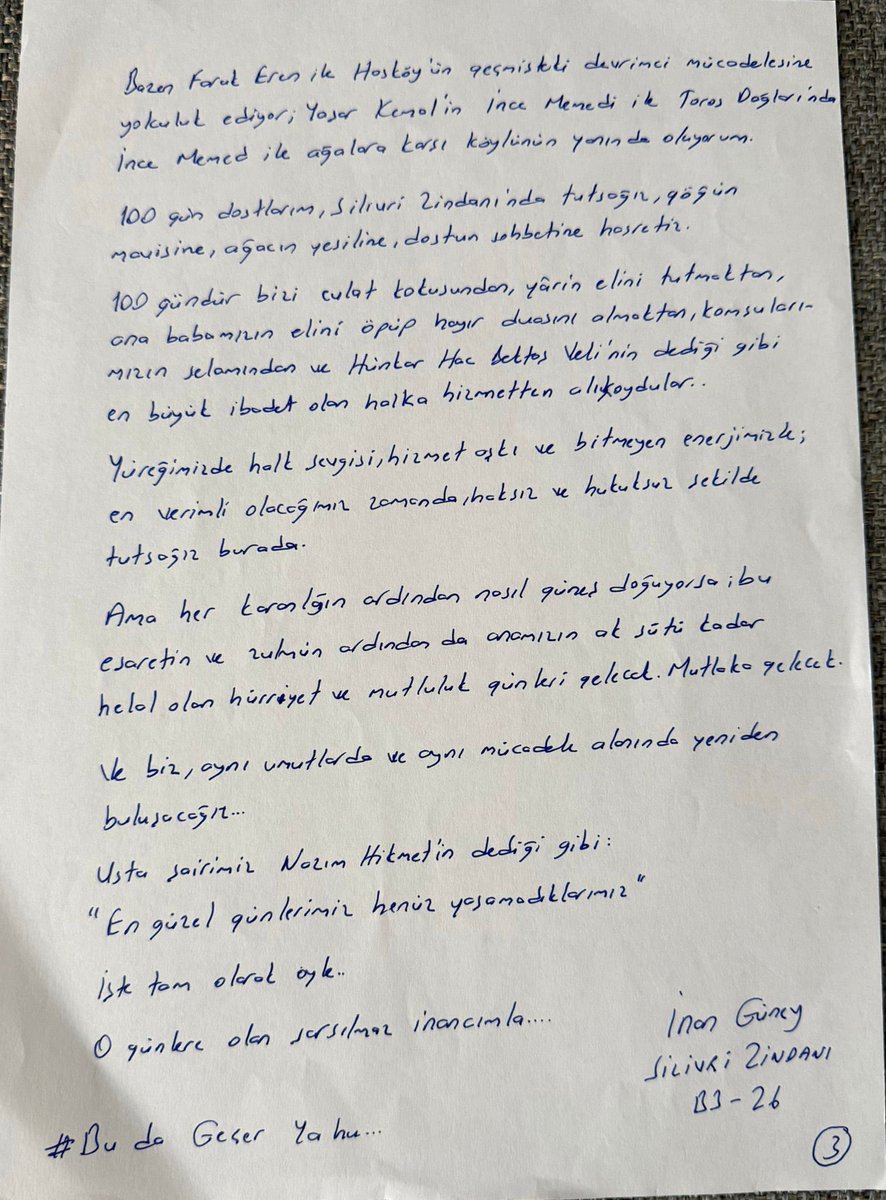 Bazen Faruk Eren ile Hasköy'ün geçmişteki devrimci mücadelesine
yolculuk ediyor; Yaşar Kemal'in İnce Memedi ile Toros Dağları'nda
İnce Memed ile ağalara karşı köylünün yanında oluyorum.
100 gün dostlarım, Silivri Zindanı'nda tutsağız, göğün
mavisine, ağacın yeşiline, dostun sohbetine hasretiz.
100 gündür bizi evlat kokusundan, yârin elini tutmaktan,
ana babamızın elini öpüp hayır duasını almaktan, komşuları-
mızın selamından ve Hünkar Hac Bektaş Veli'nin dediği gibi
en büyük ibadet olan halka hizmetten alıkoydular..
Yüreğimizde halk sevgisi, hizmet aşkı ve bitmeyen enerjimizle;
en verimli olacağımız zamanda, haksız ve hukuksuz şekilde
tutsağız burada.
Ama her karanlığın ardından nasıl güneş doğuyorsa; bu
esaretin ve zulmün ardından da anamızın ak sütü kadar
helal olan hürriyet ve mutluluk günleri gelecek. Mutlaka gelecek.
Ve biz, aynı umutlarda ve aynı mücadele alanında yeniden
buluşacağız...
Usta şairimiz Nazım Hikmet'in dediği gibi:
"En güzel günlerimiz henüz yaşamadıklarımız"
İşte tam olarak öyle..
O günlere olan sarsılmaz inancımla....
İnan Güney
SİLİVRİ ZİNDANI
B3-26
#Bu da Geçer Ya hu...
3